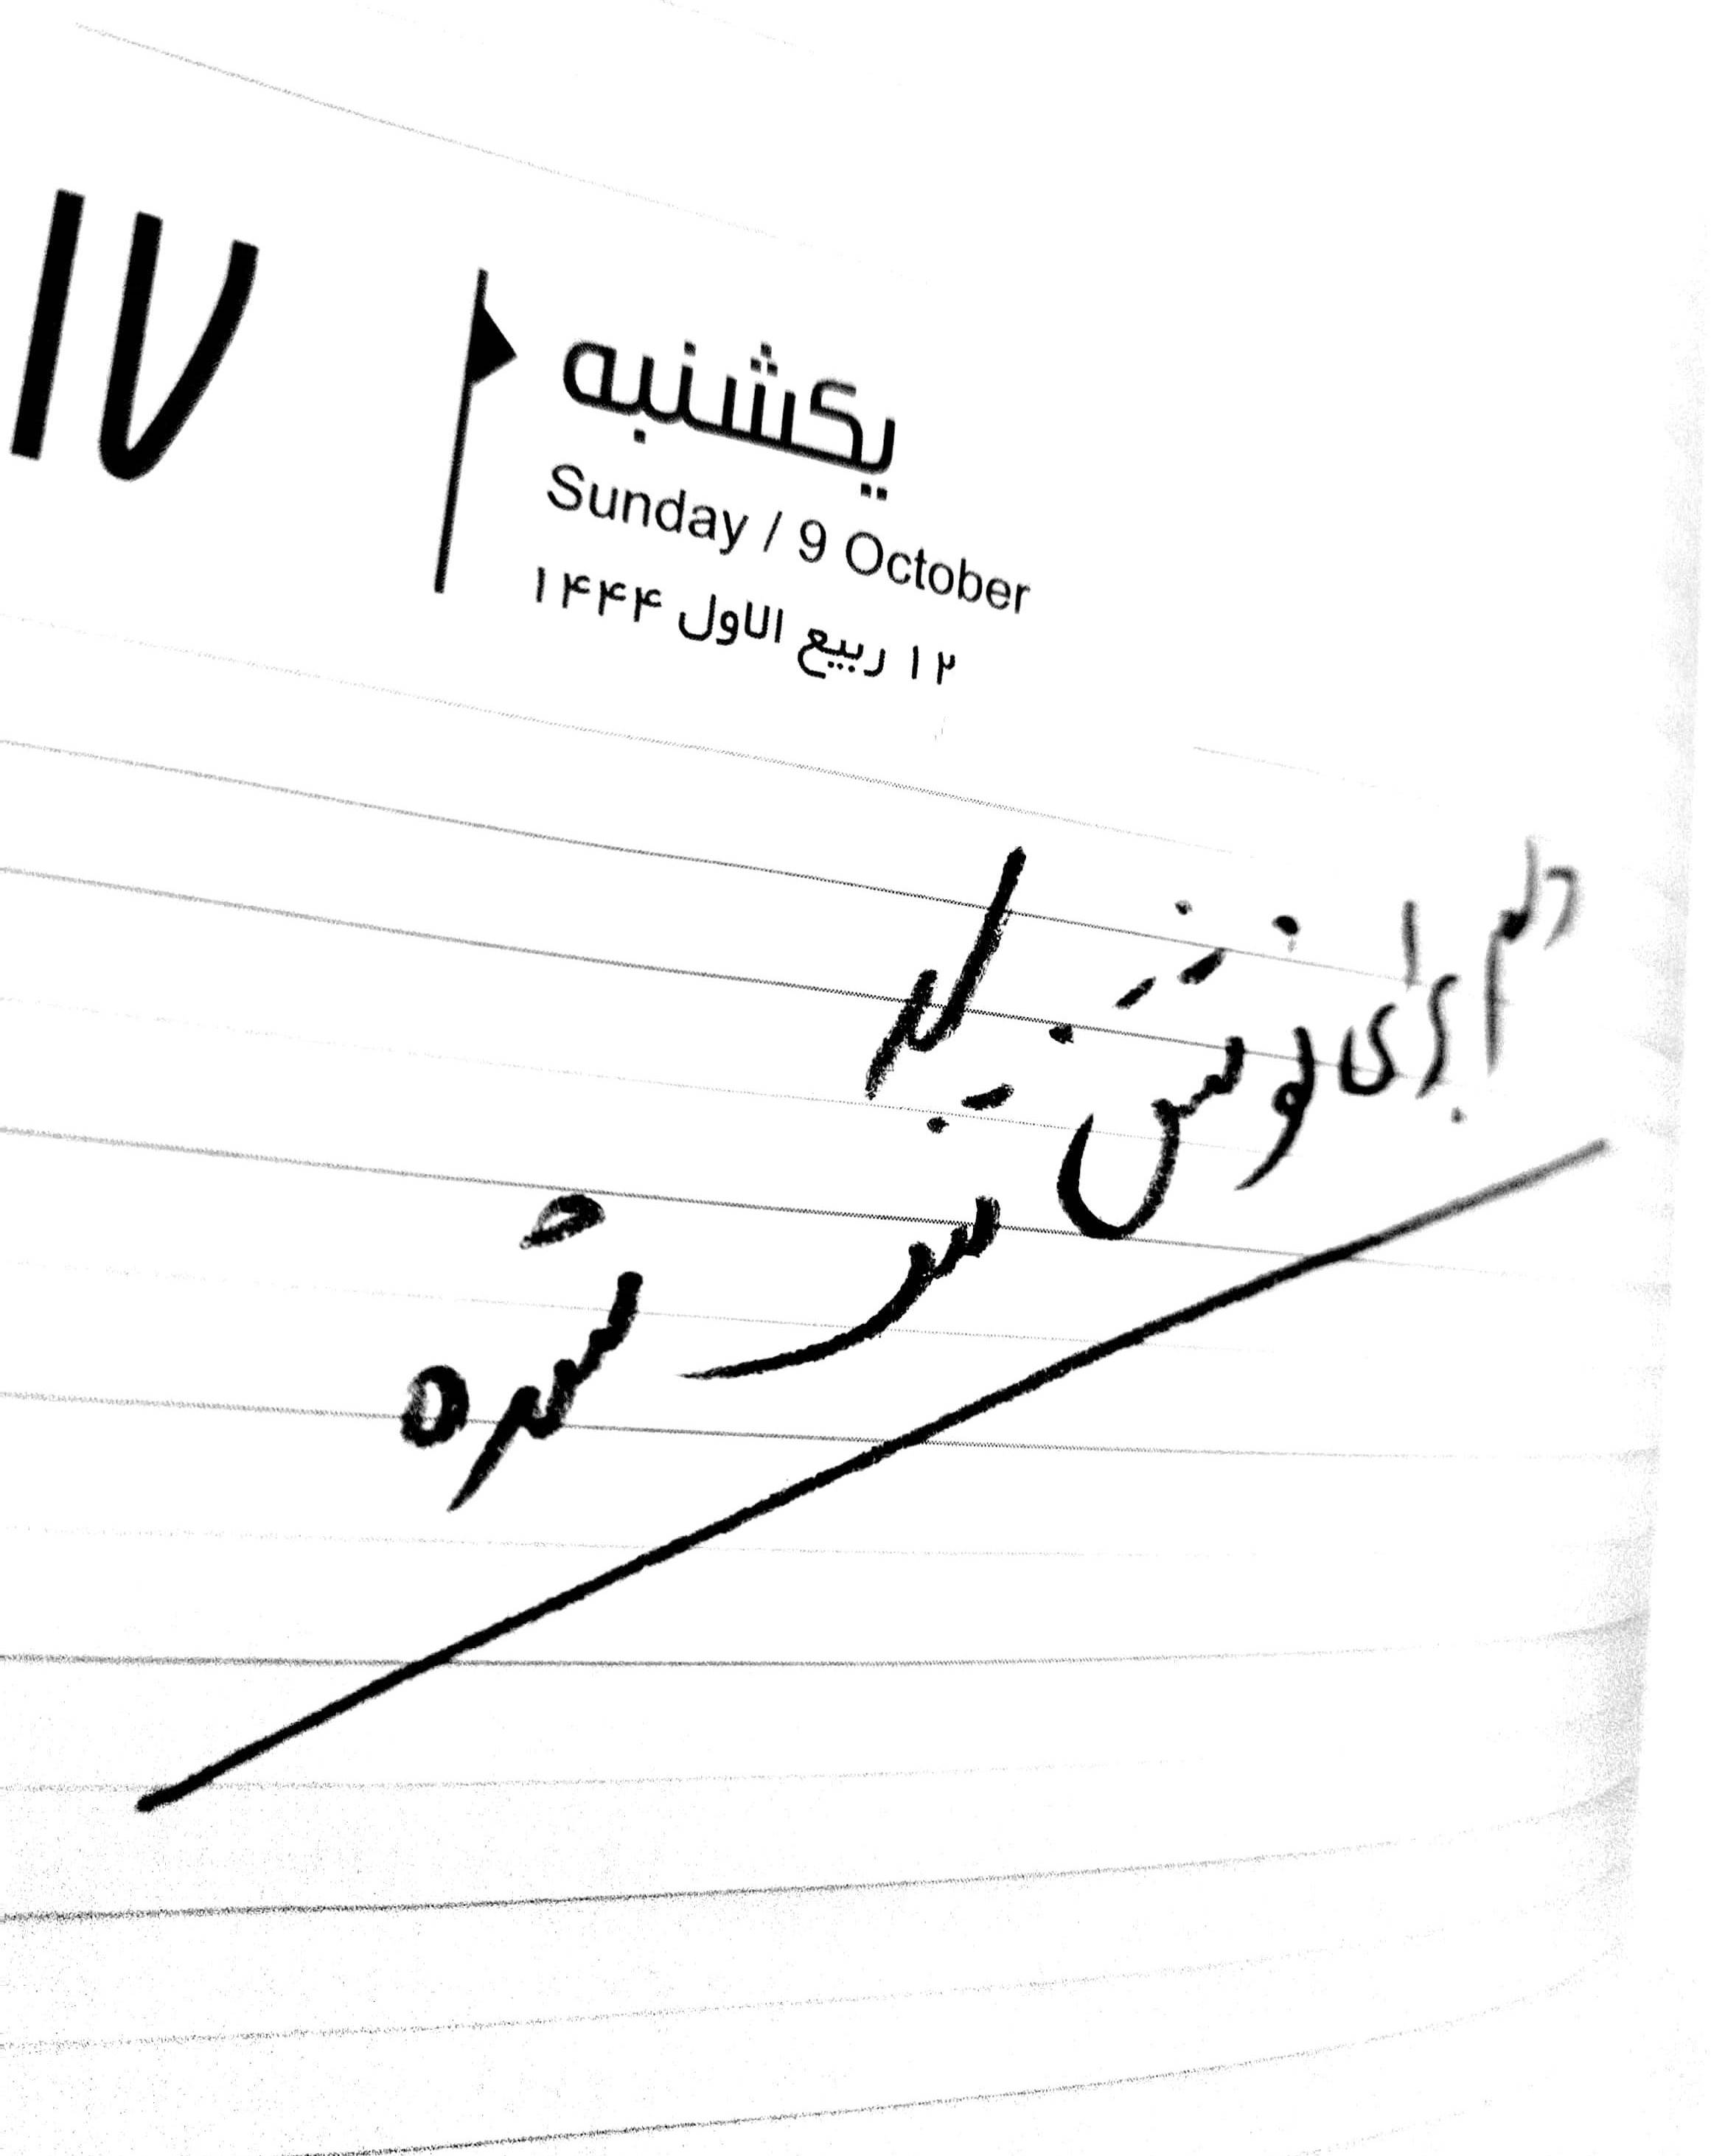 ۱۷
یکشنبه
Sunday / 9 October
۱۲ ربیع الاول ۱۴۴۴
دلم برای نوشتن